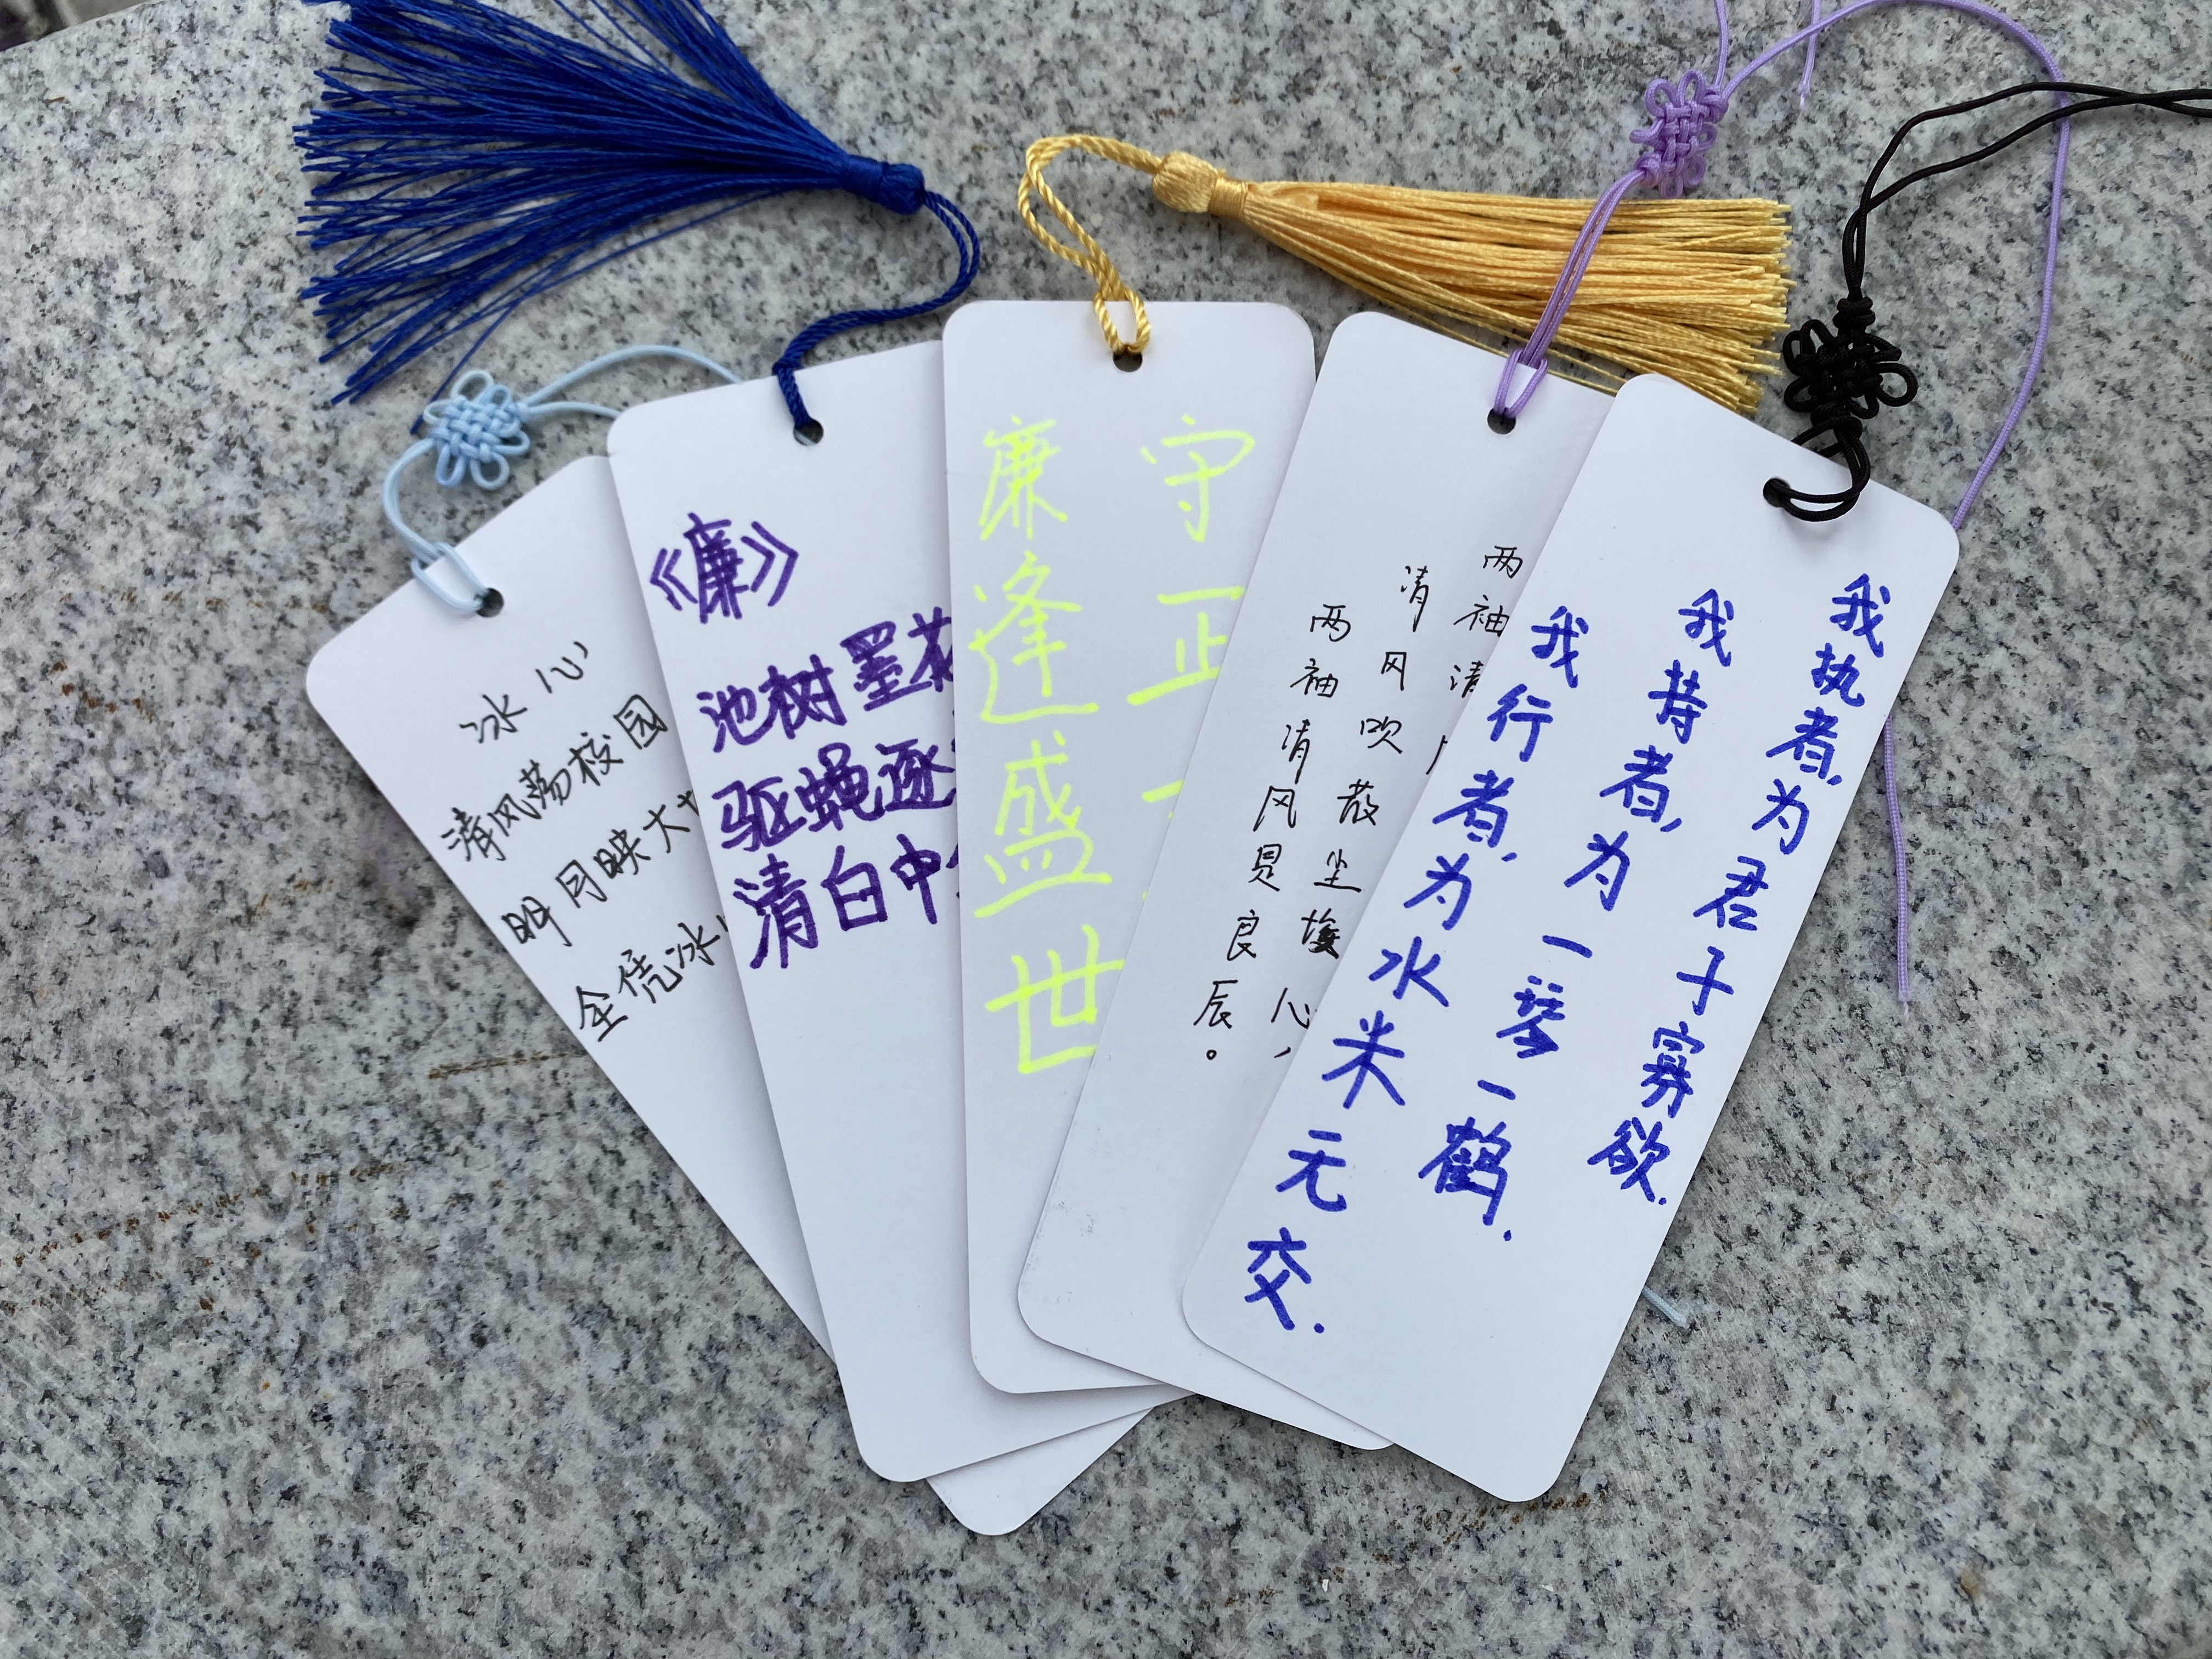 冰心
清风荡校园
明月映大
全凭冰
《廉》
池树墨花
驱蝇逐
清白中
守正
廉逢盛世
两袖清
清风吹散尘心，
两袖清风见良辰。
我执者,为君子寡欲.
我持者,为一琴一鹤.
我行者,为水米无交.